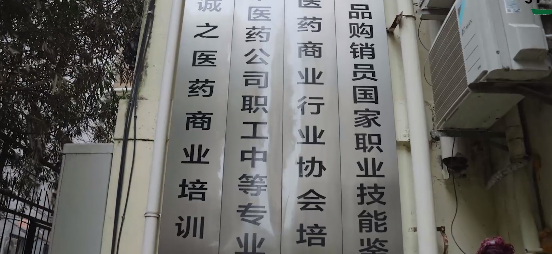 品购销员国家职业技能鉴
医药商业行业协会培
医药公司职工中等专业
诚之医药商业培训